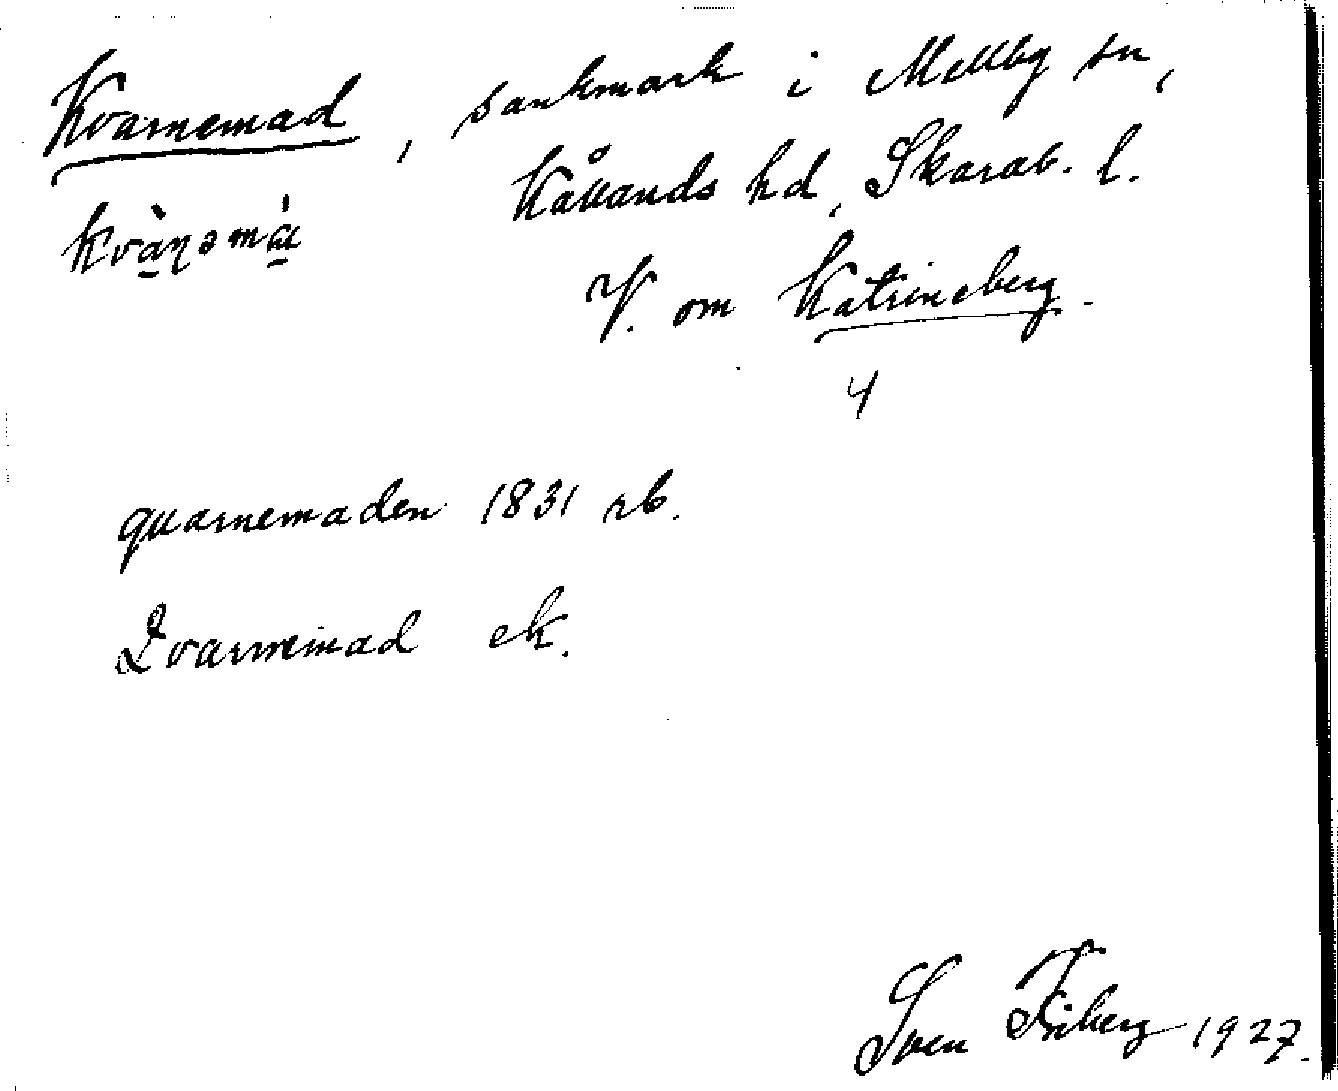 Kvarnemad, sankmark i Mellby sn,
Kållands hd, Skarab. l.
V. om Katrineberg.
4
quarnemaden 1831 rb.
Qvarnemad ek.
Sven Friberg 1927.